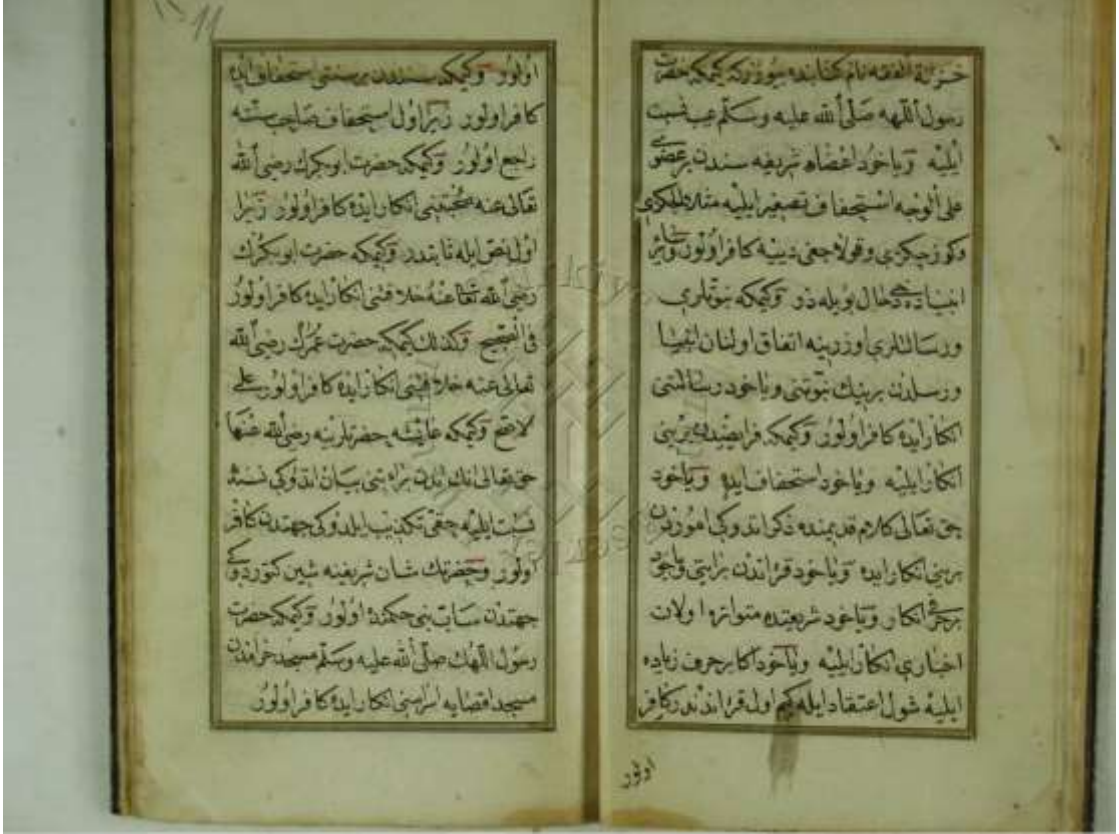 خزانة الفقه نام كتابنده بيورركه كيمكه حضرت
رسول اللهه صلى الله عليه وسلم عيب نسبت
ايليه وياخود اعضاء شريفه سندن بر عضوى
على الوجه استخفاف تصغير ايليه مثلا
وكوزجكزى وقولاجغى ديسه كافر اولور وسائر
انبياده دخى حال بويله در وكيمكه نبوتلرى
ورسالتلرى اوزرينه اتفاق اولنان انبيا
ورسلدن برينك نبوتنى وياخود رسالتنى
انكار ايده كافر اولور وكيمكه فرايضدن برينى
انكار ايليه وياخود استخفاف ايده وياخود
حق تعالى كلام قديمنده ذكر اتدوكى اموردن
برينى انكار ايده وياخود قرآندن بر آيتى وياخود
بر حرفى انكار وياخود شريعتده متواتره اولان
اخبارى انكار ايليه وياخود اكا بر حرف زياده
ايليه شول اعتقاد ايله كيم اول قرآندندر كافر
اولور
11
اولور وكيمكه سنندن بر سنتى استخفاف ايده
كافر اولور زيرا اول استخفاف صاحب سنته
راجع اولور وكيمكه حضرت ابو بكرك رضى الله
تعالى عنه صحبتنى انكار ايده كافر اولور زيرا
اول نص ايله ثابتدر وكيمكه حضرت ابو بكرك
رضى الله تعا عنه خلافتنى انكار ايده كافر اولور
فى الصحيح وكذلك كيمكه حضرت عمرك رضى الله
تعالى عنه خلافتنى انكار ايده كافر اولور على
لاصح وكيمكه عايشه حضرتلرينه رضى الله عنها
حق تعالى انك اندن براءتنى بيان اتدوكى نسنه
نسبت ايليه حقى تكذيب ايلدوكى جهتدن كافر
اولور وحضرتك شان شريفينه شين كتوردوكى
جهتدن ساب نبى حكمنده اولور وكيمكه حضرت
رسول اللهك صلى الله عليه وسلم مسجد حرامدن
مسجد اقصايه اسراسنى انكار ايده كافر اولور